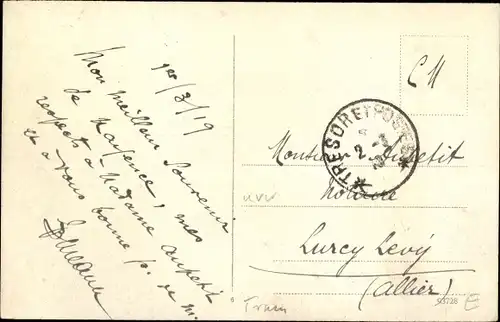 1er/3/19
Mon meilleur Souvenir
de Mayence, mes
respects à Madame Aupetit
et à vous bonne p. de m.
C M
TRESOR ET POSTES
2
Monsieur Aupetit
Notaire
Lurcy Levy
(Allier)
6
93728
E